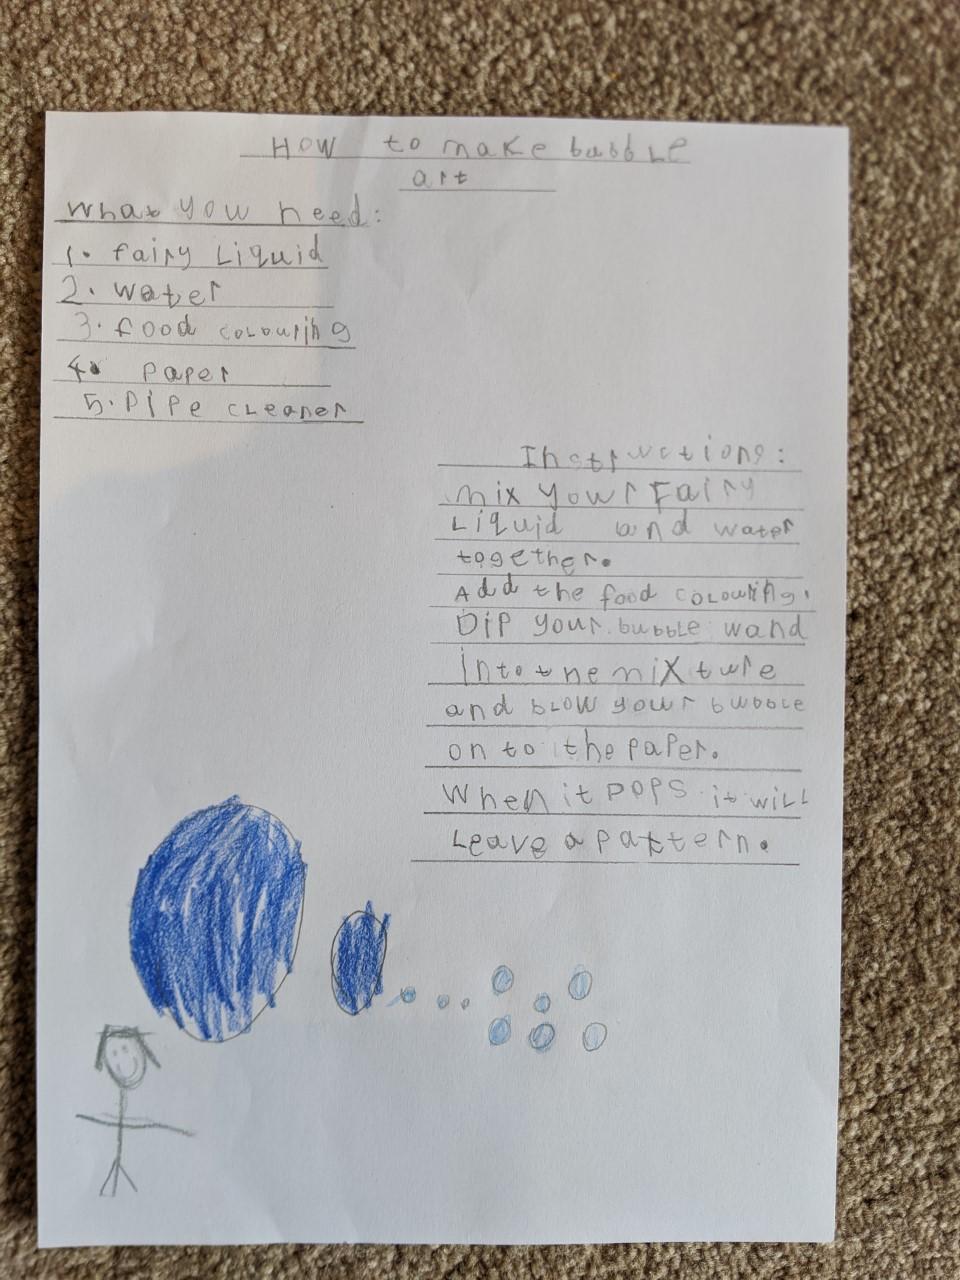 How to make bubble
art
What you need:
1. fairy Liquid
2. water
3. food colouring
4. paper
5. Pipe cleaner
Instructions:
mix your Fairy
Liquid and water
together.
Add the food colouring.
Dip your bubble wand
into the mixture
and blow your bubble
on to the paper.
When it pops it will
Leave a pattern.